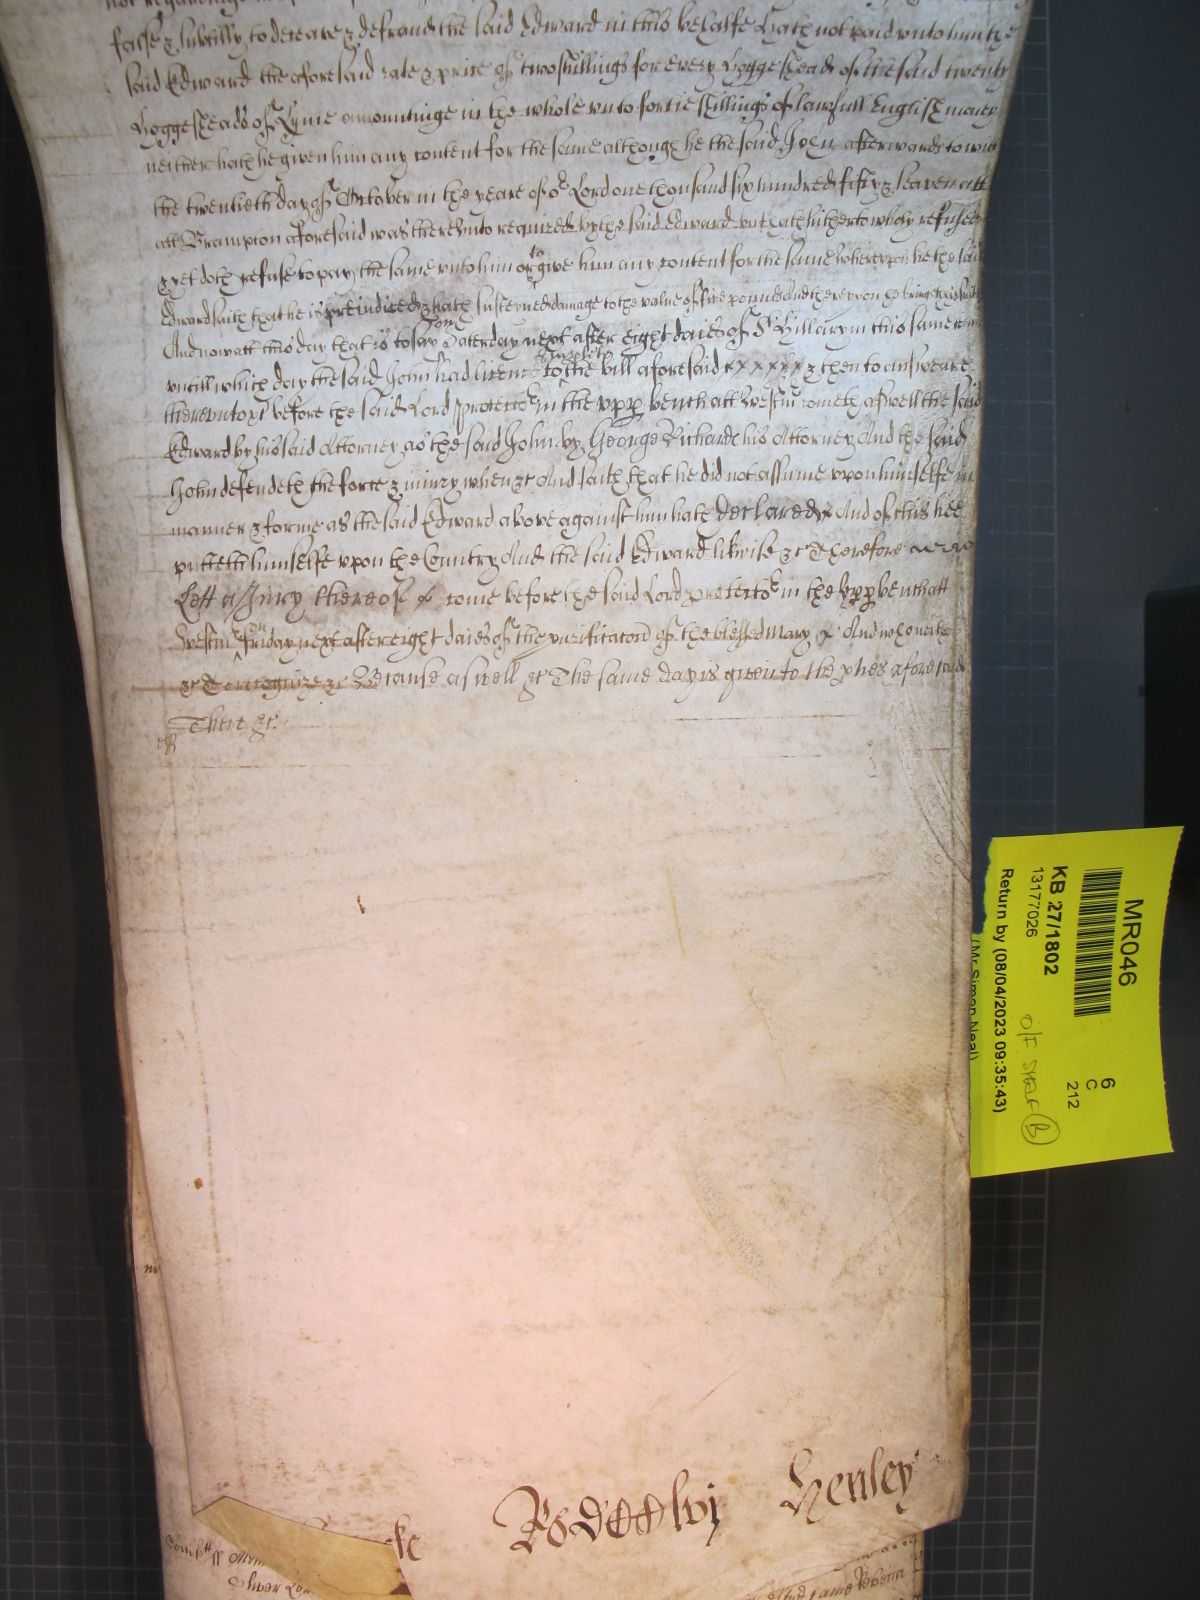 false & subtilly to deceave & defraud the said Edward in this behalfe Hath not paid unto him the
said Edward the aforesaid rate & price of two shillings for every Hoggeshead of the said twenty
Hoggesheads of Lyme amountinge in the whole unto fortie shillings of lawfull English money
neither hath he given him any content for the same although he the said John afterwards to witt
the twentieth day of October in the yeare of or Lord one thousand six hundred fifty & seaven att
att Brampton aforesaid was thereunto required by the said Edward but hath hitherto wholy refused
& yet doth refuse to pay the same unto him or to give him any content for the same whereupon he the said
Edward saith that he is preiudiced & hath susteined damage to the value of five pounds And thereupon he bringeth his suite
And now att this day that is to say on Saterday next after eight daies of St Hillary in this same terme
untill which day the said John had licence to imparle to the bill aforesaid & then to answeare
thereunto &c before the said Lord Protector in the upp bench att Westmr cometh aswell the said
Edward by his said Attorney as the said John by George Richards his Attorney And the said
John defendeth the force & iniury when &c And saith that he did not assume upon himselfe in
manner & forme as the said Edward above against him hath declared And of this hee
putteth himselfe upon the Country And the said Edward likwise &c Therefore
Lett a Jury thereof come before the said Lord protector in the upp bench att
Westmr on Friday next after eight daies of the purificacon of the blessed Mary And who neither
&c To recognize &c Because aswell &c The same day is given to the pties aforesaid
There &c
Henley
MR046
KB 27/1802
13177026
Return by (08/04/2023 09:35:43)
(Mr Simon Neal)
6
C
212
O/F SHELF B